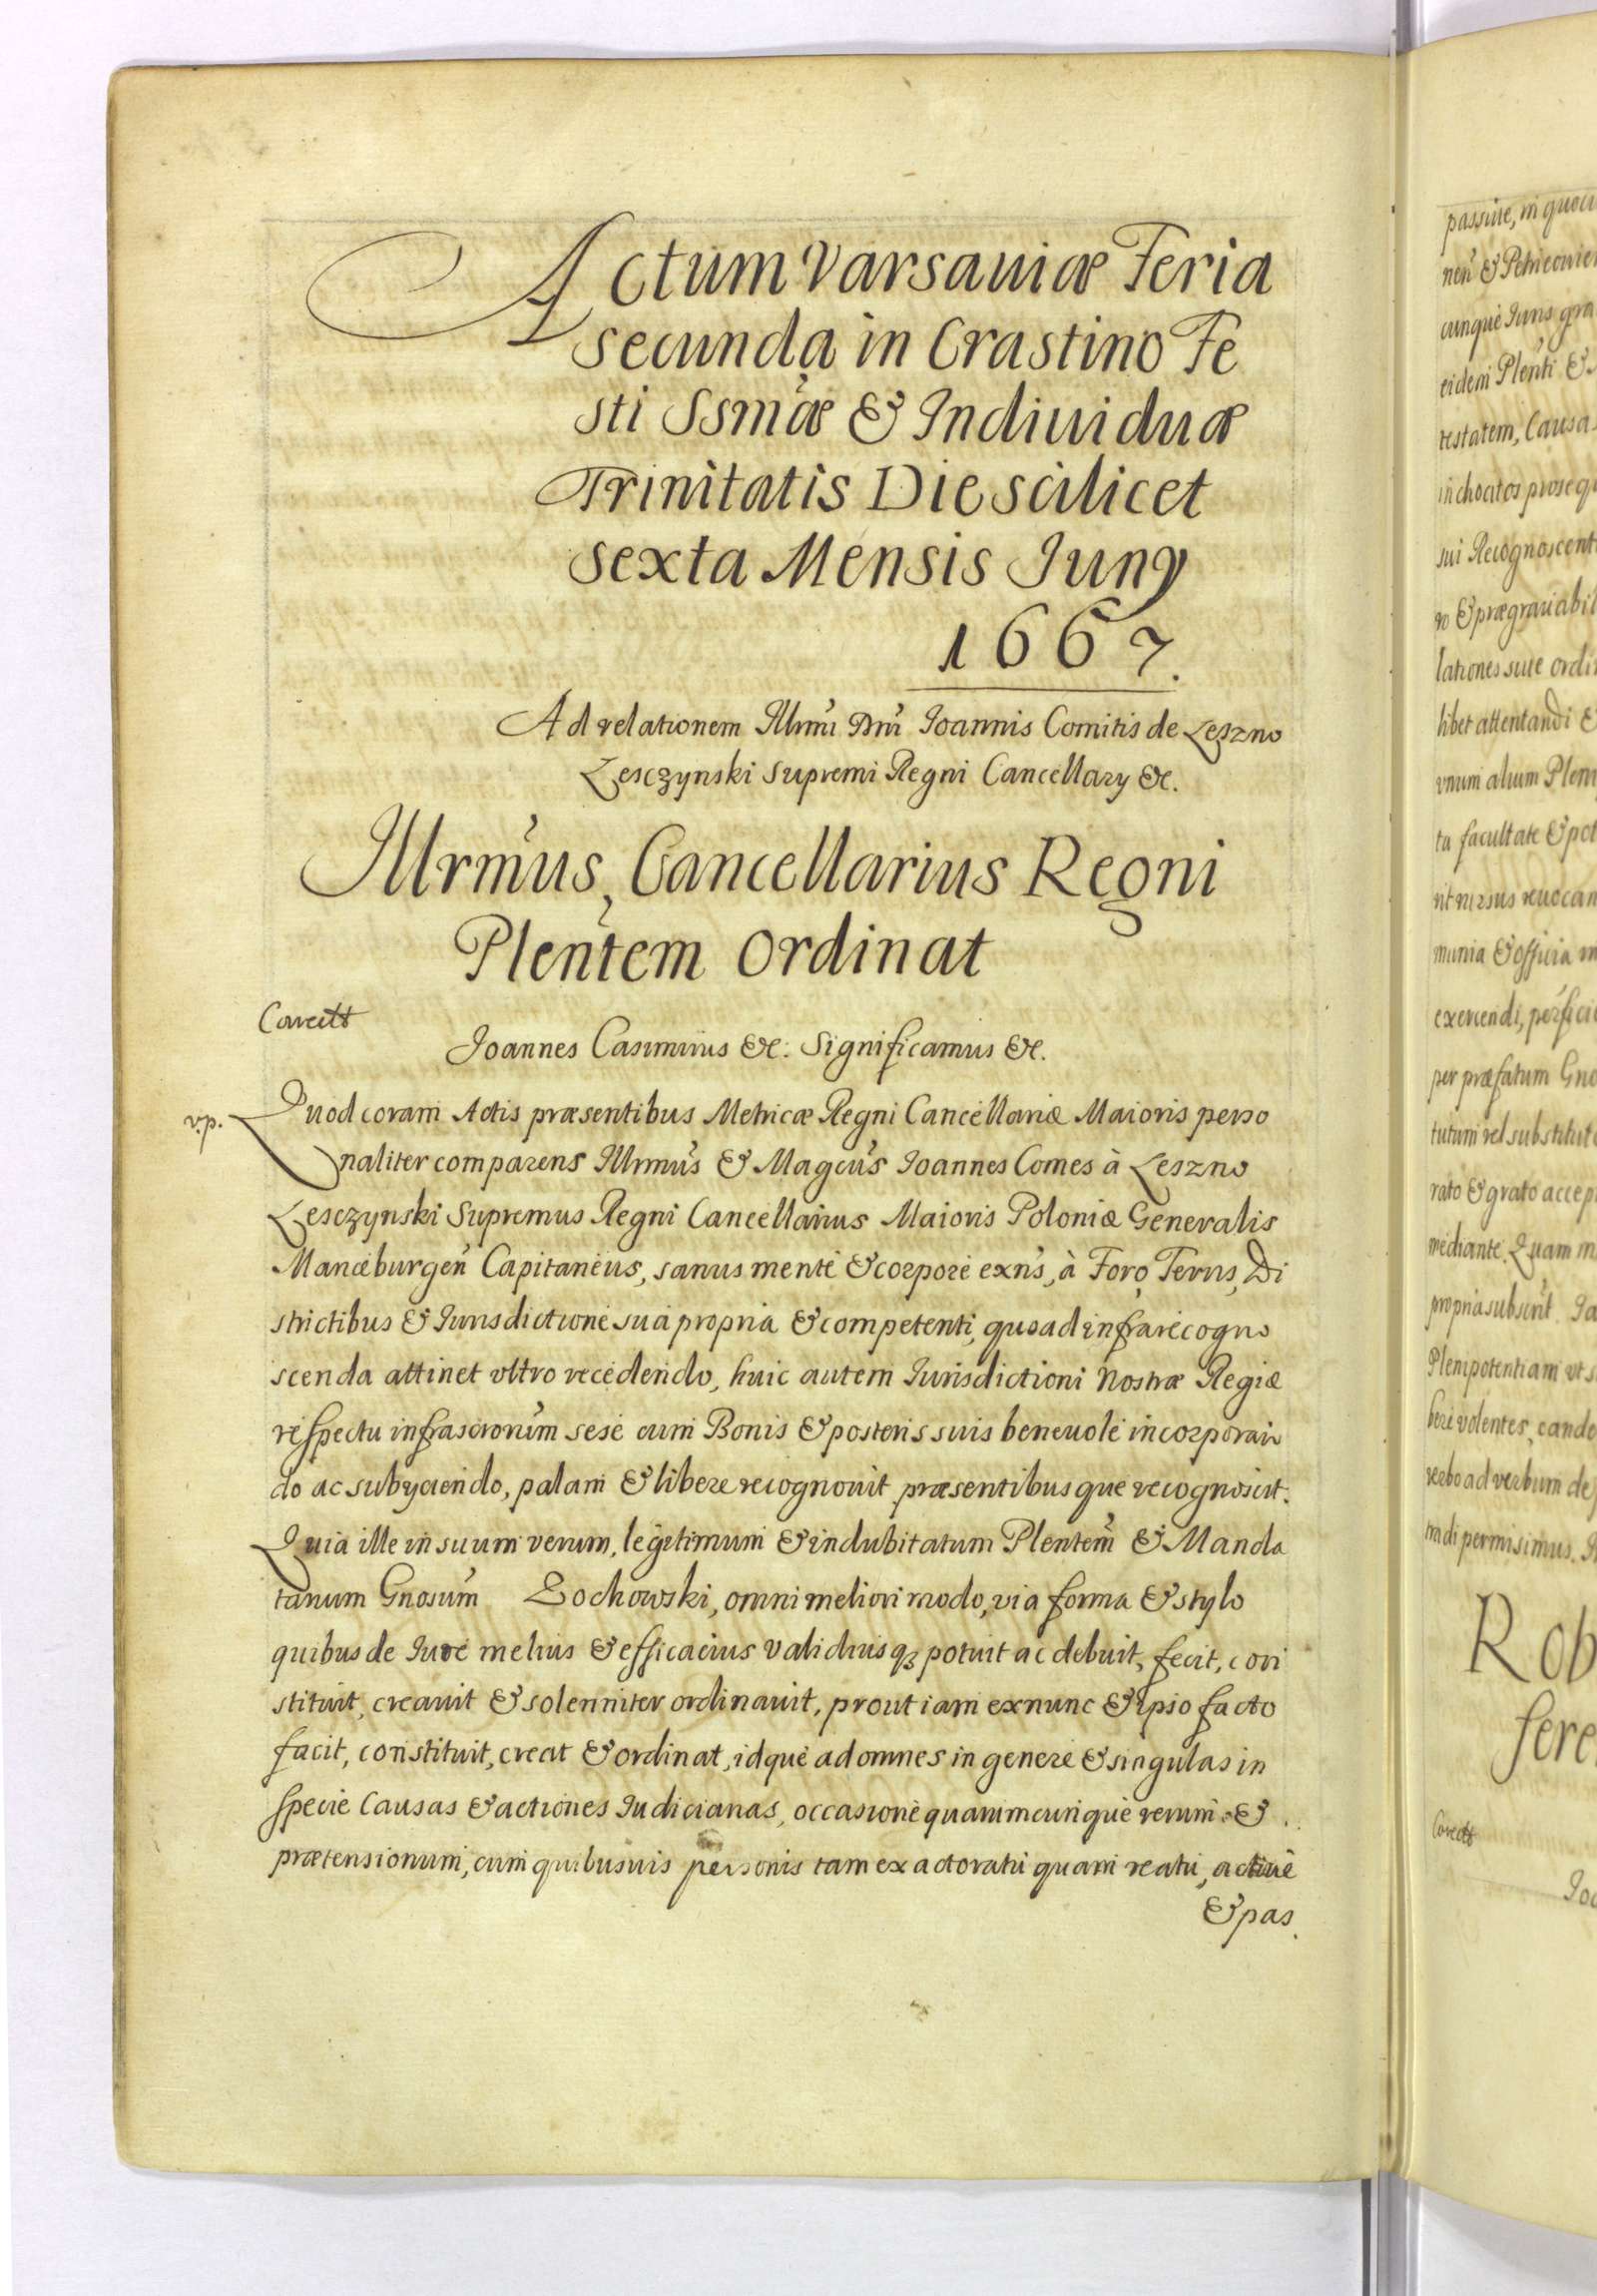 Actum Varsauiæ Feria
secunda in Crastino Fe
sti Ssmæ & Indiuiduæ
Trinitatis Die scilicet
sexta Mensis Iuny
1667.
Ad relationem Illrmi Dni Ioannis Comitis de Leszno
Lesczynski Supremi Regni Cancellary &c.
Illrmus, Cancellarius Regni
Plentem Ordinat
Ioannes Casimirus &c: Significamus &c.
v.p.
Quod coram Actis præsentibus Metricæ Regni Cancellariæ Maioris perso
naliter comparens Illrmus & Magcus Ioannes Comes à Leszno
Lesczynski Supremus Regni Cancellarius Maioris Poloniæ Generalis
Capitaneus, sanus mente & corpore exns, à Foro Terris, Di
strictibus & Iurisdictione sua propria & competenti, quoad infra recogno
scenda attinet vltro recedendo, huic autem Iurisdictioni Nostræ Regiæ
respectu infrascrorum sese cum Bonis & posteris suis beneuole incorporan
do ac subyciendo, palam & libere recognouit præsentibusque recognoscit.
Quia ille in suum verum, legitimum & indubitatum Plentem & Manda
tarium Gnosum Zochowski, omni meliori modo, via forma & stylo
quibus de Iure melius & efficacius validiusq3 potuit ac debuit, fecit, con
stituit, creauit & solenniter ordinauit, prout iam exnunc & ipso facto
facit, constituit, creat & ordinat, idque ad omnes in genere & singulas in
specie Causas & actiones Iudiciarias, occasione quarumcunque rerum &
prætensionum, cum quibusuis personis tam ex actoratu quam reatu, actiue
& pas.
passiue, in
cunque Iuris
eidem Plenti &
testatem, Causas
inchoatos
sui
& prægrauabil
lationes suæ
libet attentandi &
vnum alium
ta facultate &
rursus
munia & officia
exercendi,
per præfatum
tutum vel
rato & grato
mediante. Quam
propria
Plenipotentiam
volentes,
verbo ad verbum
permisimus.
Rob
fere